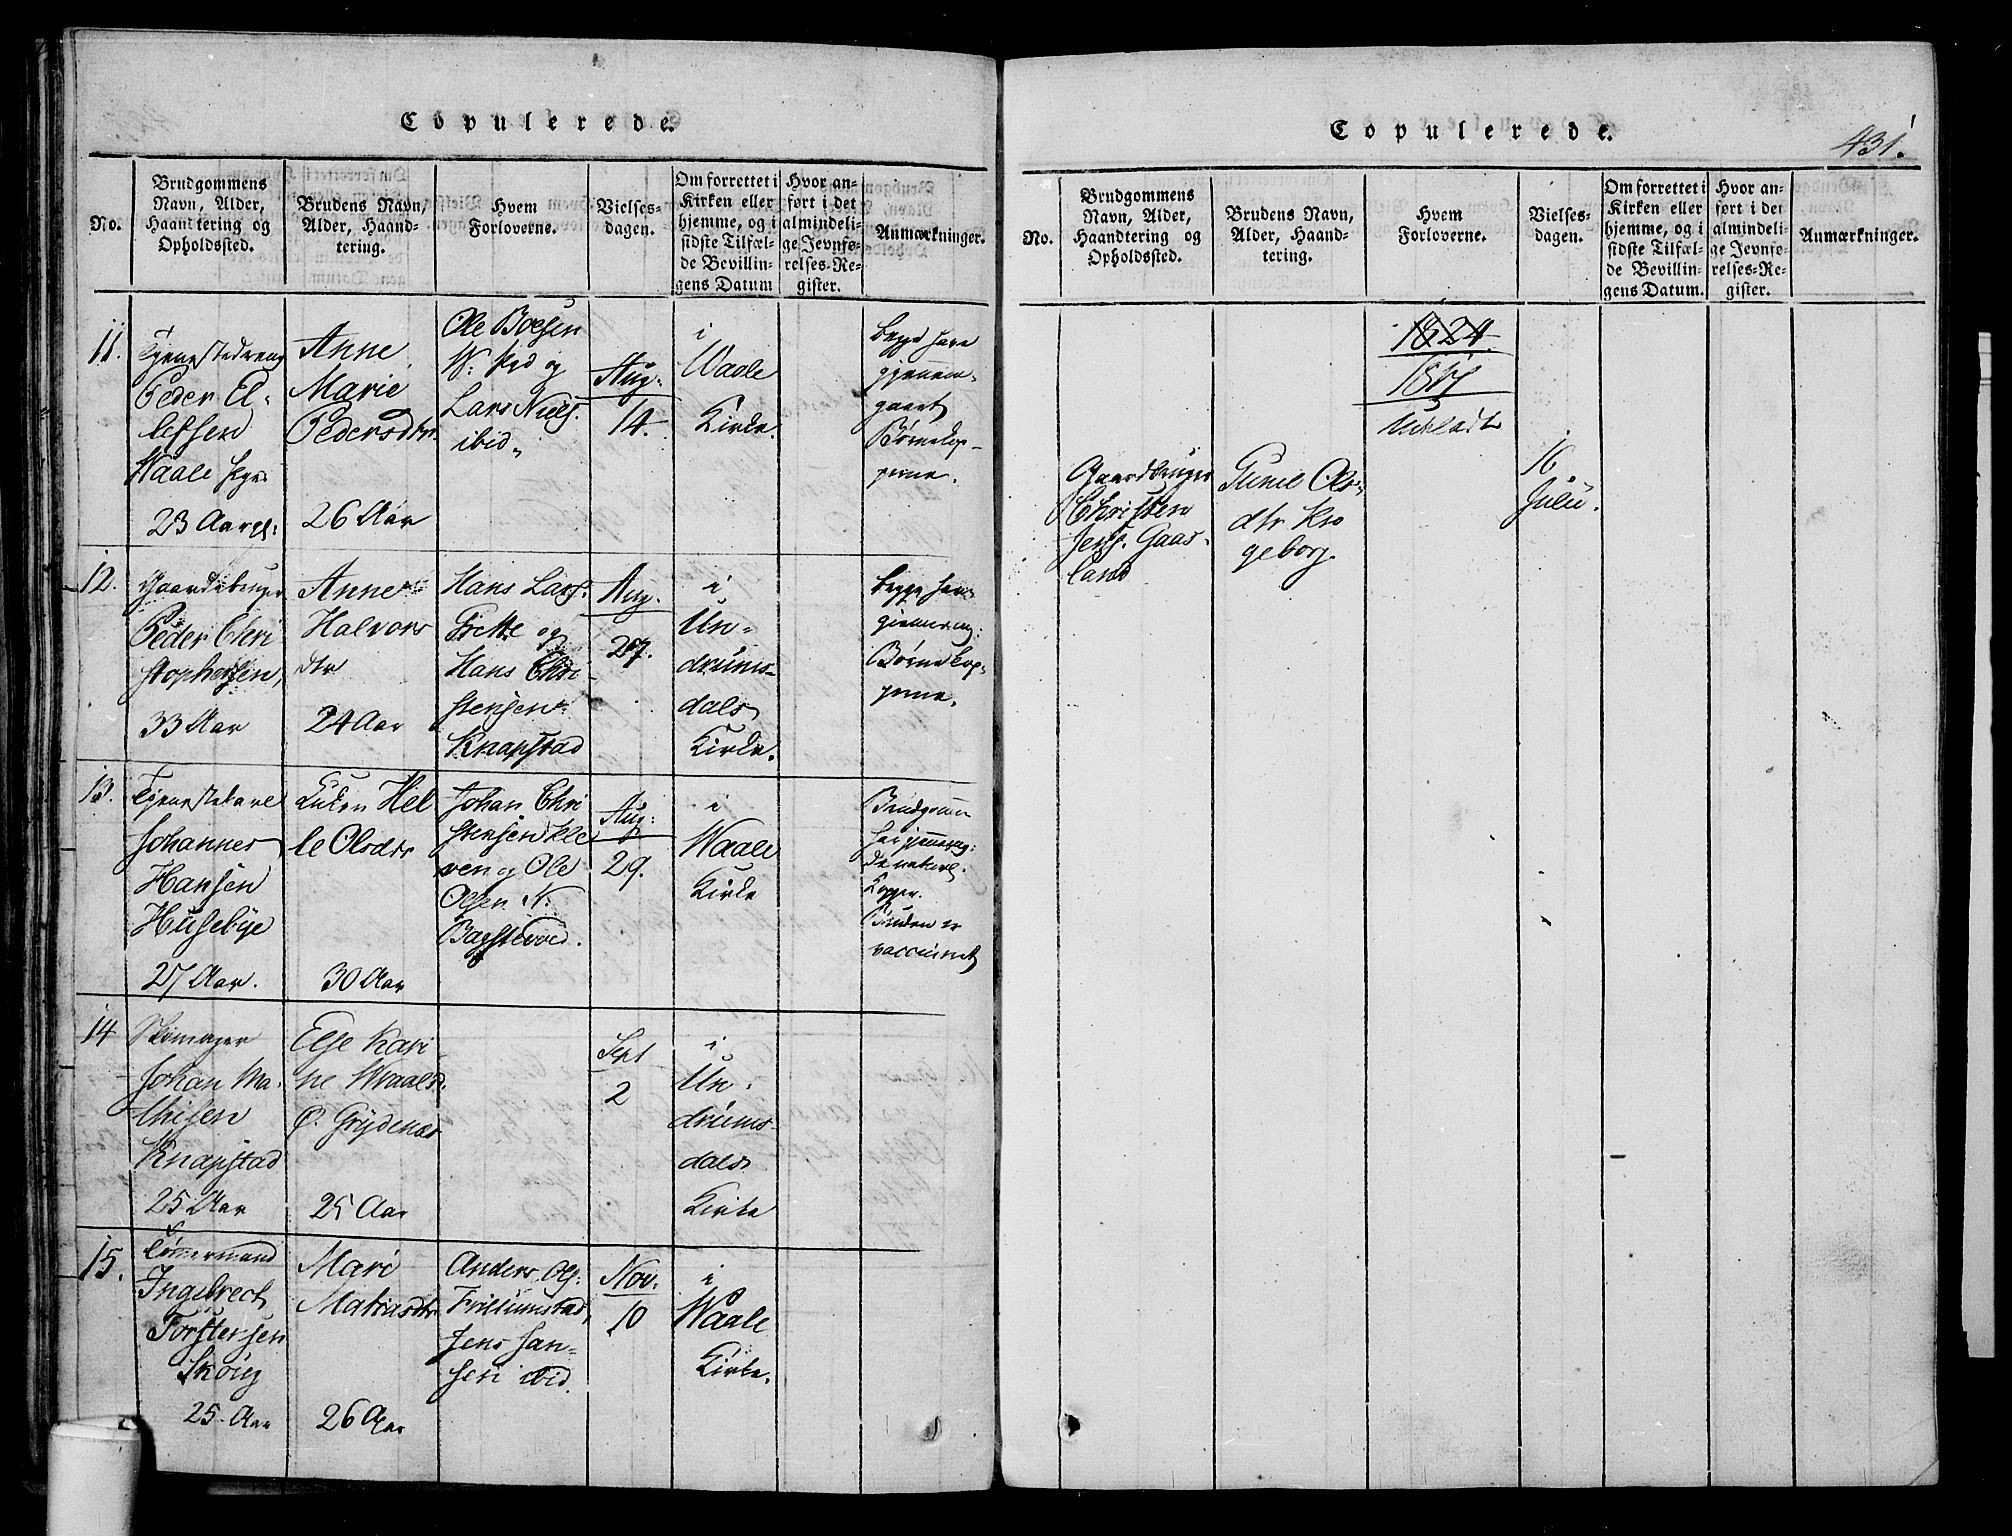 Copulerede.
No.
Brudgommens
Navn, Alder,
Haandtering og
Opholdssted.
Brudens Navn,
Alder, Haand-
tering.
Hvem
Forloverne.
Vielses-
dagen.
Om forrettet i
Kirken eller
hjemme, og i
sidste Tilfæl-
de Bevillin-
gens Datum
Hvor an-
ført i det
almindeli-
ge Jevnfø-
relses-Re-
gister.
Anmærkninger.
11.
Tjenestedreng
Peder El-
lefsen
Waale
23 Aar
Anne
Marie
Pedersdtr.
26 Aar
Ole Boesen
og
Lars Niels.
ibid
Aug.
14.
i
Waale
Kirke.
begge have
gjennem-
gaaet
Børnekop-
perne.
12.
Gaardbruger
Peder Chri
stophersen,
33 Aar
Anne
Halvors
dtr
24 Aar
Hans Lars.
og
Hans Chri
stensen
Knapstad
Aug.
27.
i
Un-
drums-
dals
Kirke.
begge have
Børnekop-
perne.
13.
Tjenestekarl
Johannes
Hansen
Husebye
27 Aar.
Hel
le Olsdtr
30 Aar
Johan Chri
stensen Kle
ven og Ole
Olsen N.
Bagstevold.
Aug:
29.
i
Waale
Kirke
Brudgommen
har
de naturl.
Kopper.
Bruden er
vaccineret
14
Skomager
Johan Ma-
thisen
Knapstad
25 Aar
Else Kari
ne Waals
Ø. Grydenær
25 Aar
Sept
2
i
Un-
drums-
dals
Kirke
15.
Tømmermand
Ingebrect
Torstensen
Skoug
25 Aar
Mari
Matiasdtr
26 Aar
Anders Ols:
Frillumstad,
Jens Han-
sen ibid.
Nov.
10
i
Waale
Kirke.
Copulerede.
431.
No.
Brudgommens
Navn, Alder,
Haandtering og
Opholdssted.
Brudens Navn,
Alder, Haand-
tering.
Hvem
Forloverne.
Vielses-
dagen.
Om forrettet i
Kirken eller
hjemme, og i
sidste Tilfæl-
de Bevillin-
gens Datum.
Hvor an-
ført i det
almindeli-
ge Jevnfø-
relses-Re-
gister.
Anmærkninger.
1824.
1817
Udeladt
Gaardbruger
Christen
Jens. Gaas-
land
Gunil Ols-
dtr Kro
geborg.
16
Julii.